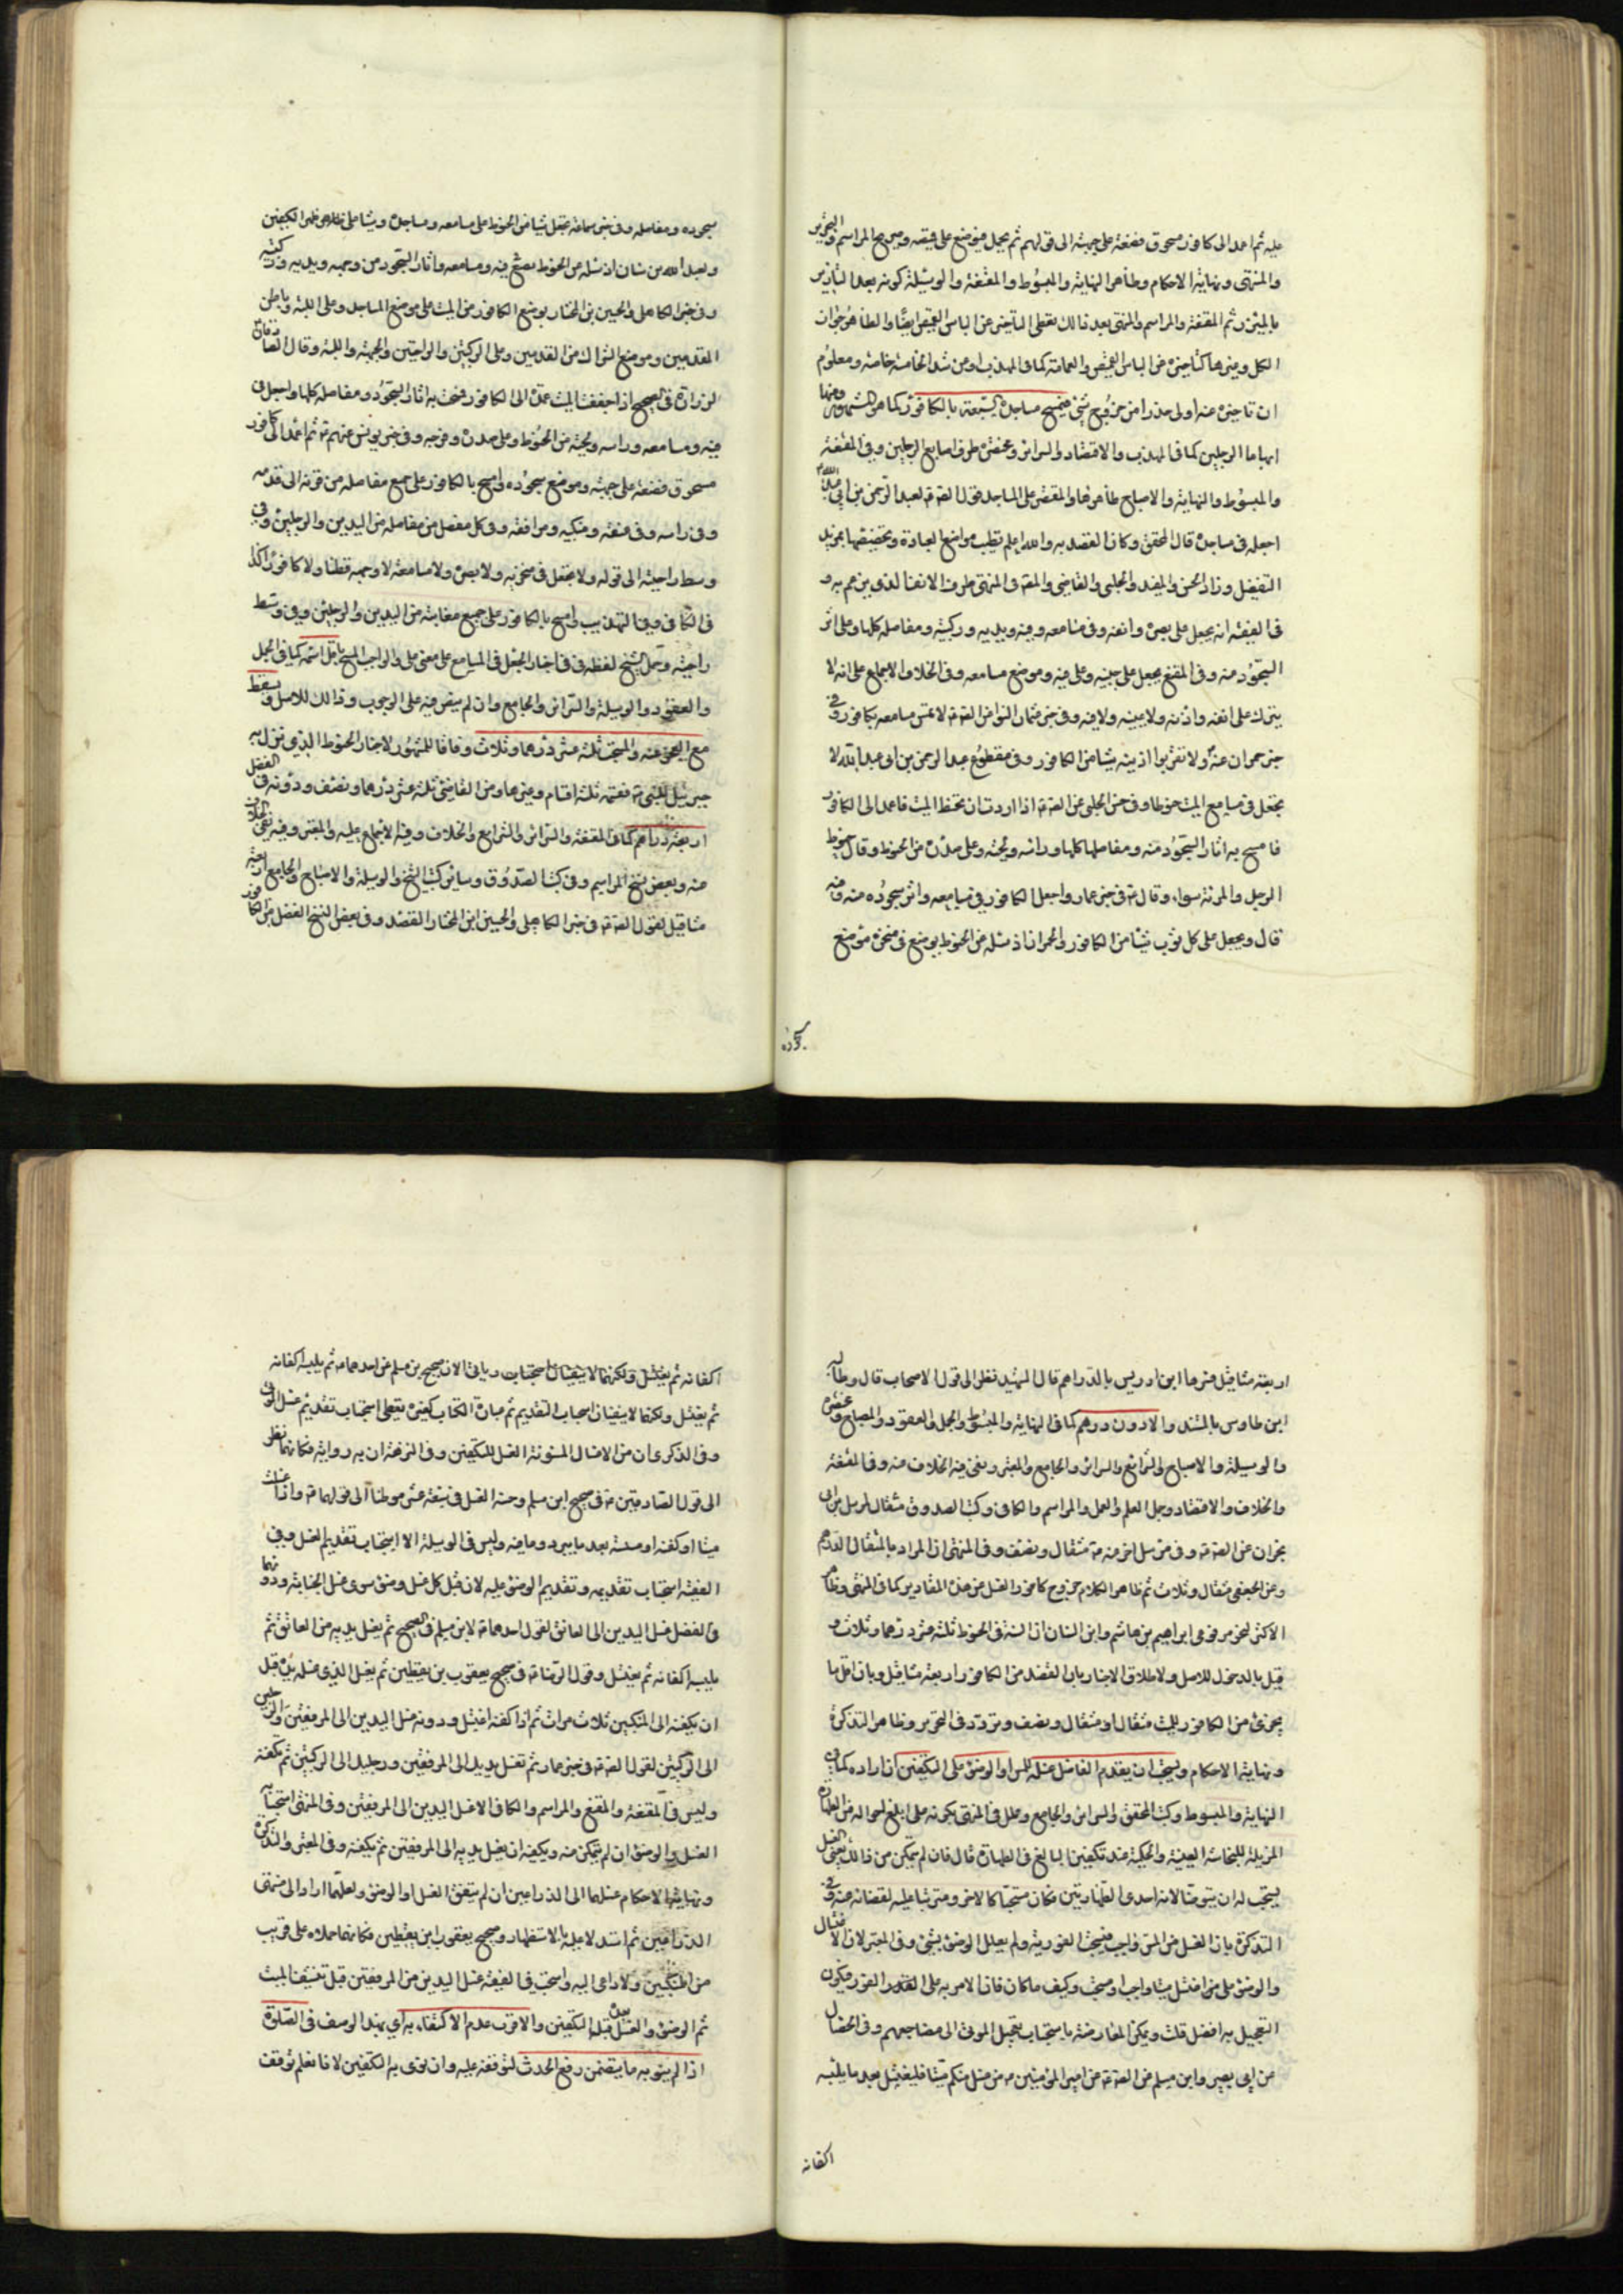 عليه ثم اعمد الى كافور مسحوق فضعه على جبهته الى قولهم ثم يحمل فيوضع على قميصه وصريح المراسم والتحرير
والمنتهى ونهاية الاحكام وظاهر النهاية والمبسوط والمقنعة والوسيلة كونه بعد التازير
بالميزر ثم المقنعة والمراسم والمنتهى بعد ذلك يعطى التاخير عن الباس القميص ايضا والظاهر جواز
الكل وغيرها كتاخيره عن الباس القميص والعمامة كما في المهذب او عن شد الخامسة خاصة ومعلوم
ان تاخيره عنه اولى حذرا من خروج شئ فيمسح مساجده السبعة بالكافور كما هو المشهور ومنها
ابهاما الرجلين كما في المهذب والاقتصاد والسرائر وعوضه طرف اصابع الرجلين وفي المقنعة
والمبسوط والنهاية والاصباح ظاهرها والمقتصر على المساجد قول الصادق لعبد الرحمن بن ابي عبد الله
اجعله في مساجده قال المحقق وكان القصد به والله اعلم تطيب مواضع العبادة وتخصيصها بمزيد
التفضل وزاد الحسن والمفيد والحلبي والقاضي والمصنف في المنتهى طرف الانف الذي يرغم به و
في الفقيه انه يجعل على بصره وانفه وفي مسامعه وفيه ويديه وركبتيه ومفاصله كلها وعلى اثر
السجود منه وفي المقنع يجعل على جبينه وعلى فيه وموضع مسامعه وفي الخلاف الاجماع على انه لا
يترك على انفه واذنه ولا عينيه ولا فيه وفي خبر عثمان النوا عن الصادق لا تمس مسامعه بكافور وفي
خبر حمران عنه ولا تقربوا اذنيه شيئا من الكافور وفي مقطوع عبد الرحمن بن ابي عبد الله لا
تجعل في مسامع الميت حنوطا وفي حسن الحلبي عن الصادق اذا اردت ان تحنط الميت فاعمد الى الكافور
فامسح به اثار السجود منه ومفاصلها كلها وراسه ولحيته وعلى صدره من الحنوط وقال حنوط
الرجل والمراة سواء وقال في خبر عمار واجعل الكافور في مسامعه واثر سجوده منه وفيه
قال ويجعل على كل ثوب شيئا من الكافور والحمران اذ سئله عن الحنوط يوضع في منخره موضع
سجوده ومفاصله وفي خبر سماعة تجعل شيئا من الحنوط على مسامعه ومساجده وشيئا على ظهر الكفين
ولعبد الله بن سنان اذ سئله عن الحنوط تضع في فيه ومسامعه واثار السجود من وجهه ويديه وركبتيه
وفي خبر الكاهلي والحسين بن المختار يوضع الكافور من الميت على موضع المساجد وعلى اللبة وباطن
القدمين وموضع الشراك من القدمين وعلى الركبتين والراحتين والجبهة واللبة وقال الصادقان
لزرارة في الصحيح اذا جففت الميت عمدت الى الكافور فمسحت به اثار السجود ومفاصله كلها واجعل في
فيه ومسامعه وراسه ولحيته من الحنوط وعلى صدره وفرجه وفي خبر يونس عنهم ثم اعمد الى كافور
مسحوق فضعه على جبهته وموضع سجوده وامسح بالكافور على جميع مفاصله من قرنه الى قدمه
وفي راسه وفي عنقه ومنكبيه ومرافقه وفي كل مفصل من مفاصله من اليدين والرجلين وفي
وسط راحتيه الى قوله ولا يجعل في منخريه ولا بصره ولا مسامعه ولا وجهه قطنا ولا كافورا كذا
في الكافي وفي التهذيب وامسح بالكافور على جميع مغابنه من اليدين والرجلين وفي وسط
راحتيه وحمل الشيخ لفظة في في اخبار الجعل في المسامع على معنى على والواجب المسح باقل اسمه كما في الجمل
والعقود والوسيلة والسرائر والجامع وان لم ينص فيه على الوجوب وذلك للاصل ويسقط
مع العجز عنه والمستحب ثلثة عشر درهما وثلث وفاقا للمشهور لاخبار الحنوط الذي نزل به
جبرئيل للنبي فقسمه ثلثة اقسام وغيرها وعن القاضي ثلثة عشر درهما ونصف ودونه في الفضل
اربعة دراهم كما في المقنعة والسرائر والشرايع والخلاف وفيه الاجماع عليه والمعتبر وفيه نفي الخلاف
عنه وبعض نسخ المراسم وفي كتب الصدوق وسائر كتب الشيخ والوسيلة والاصباح والجامع اربعة
مثاقيل لقول الصادق في خبر الكاهلي والحسين ابن المختار القصد وفي بعض النسخ الفضل من الكافور
اربعة مثاقيل فسرها ابن ادريس بالدراهم قال الشهيد نظرا الى قول الاصحاب قال وطالبه
ابن طاوس بالمستند والادون درهم كما في النهاية والمبسوط والجمل والعقود والمصباح ومختصره
والوسيلة والاصباح والشرائع والسرائر والجامع والمعتبر ونفى فيه الخلاف عنه وفي المقنعة
والخلاف والاقتصاد وجمل العلم والعمل والمراسم والكافي وكتب الصدوق مثقال لمرسل ابن ابي
نجران عن الصادق وفي مرسل اخر عنه مثقال ونصف وفي المنتهى ان المراد بالمثقال الدرهم
وعن الجعفي مثقال وثلث ثم ظاهر الكلام خروج كافور الغسل من هذه المقادير كما في المنتهى وظاهر
الاكثر لنحو مرفوعي ابراهيم بن هاشم وابن السنان ان السنة في الحنوط ثلثة عشر درهما وثلث و
قيل بالدخول للاصل ولاطلاق الاخبار بان القصد من الكافور اربعة مثاقيل وبان اقل ما
يجزئ من الكافور للميت مثقال او مثقال ونصف وتردد في التحرير وظاهر التذكرة
ونهاية الاحكام ويستحب ان يقدم الغاسل غسله للمس او الوضوء على التكفين ان اراده كما في
النهاية والمبسوط وكتب المحقق والسرائر والجامع وعلل في المنتهى بكونه على ابلغ احواله من الطهارة
المزيلة للنجاسة العينية والحكمية عند تكفين البالغ في الطهارة قال فان لم يتمكن من ذلك يعني الغسل
يستحب له ان يتوضا لانه احدى الطهارتين فكان مستحبا كالاخر ومترتبا عليه لنقصانه عنه وفي
التذكرة بان الغسل من المس واجب فيستحب الفورية ولم يعلل الوضوء بشئ وفي المعتبر لان الاغتسال
والوضوء على من اغتسل ميتا واجب او مستحب وكيف ما كان فان الامر به على الفور فيكون
التعجيل به افضل قلت ويمكن المعارضة باستحباب تعجيل الموتى الى مضاجعهم وفي الخصال
عن ابي بصير وابن مسلم عن الصادق عن امير المؤمنين من غسل منكم ميتا فليغتسل بعد ما يلبسه
اكفانه ثم يغتسل ولكنهما لا ينفيان استحباب وياتي الان صحيح بن مسلم عن احدهما ثم يلبسه اكفانه
ثم يغتسل ولكنهما لا ينفيان استحباب التقديم ثم عبارة الكتاب كغيره يعطى استحباب تقديم غسل
وفي الذكرى ان من الاغسال المسنونة الغسل للتكفين وفي النزهة ان به رواية فكانهما نظرا
الى قول الصادقين في صحيح ابن مسلم وحسنه الغسل في سبعة عشر موطنا الى قولهما واذا غسلت
ميتا او كفنته او مسسته بعد ما يبرد وما فيه وليس في الوسيلة الا استحباب تقديم الغسل وفي
الفقيه استحباب تقديمه وتقديم الوضوء عليه لان قبل كل غسل وضوء سوى غسل الجنابة ودونهما
في الفضل غسل اليدين الى العاتق لقول احدهما لابن مسلم في الصحيح ثم يغسل يديه من العاتق ثم
يلبسه اكفانه ثم يغتسل وقول الرضا في صحيح يعقوب بن يقطين ثم يغسل الذي غسله يده قبل
ان يكفنه الى المنكبين ثلاث مرات ثم اذا كفنه اغتسل ودونه غسل اليدين الى المرفقين والرجلين
الى الركبتين لقول الصادق في خبر عمار ثم تغسل يديك الى المرفقين ورجليك الى الركبتين ثم تكفنه
وليس في المقنعة والمقنع والمراسم والكافي الا غسل اليدين الى المرفقين وفي المنتهى استحباب
الغسل والوضوء ان لم يتمكن منه ويكفيه ان يغسل يديه الى المرفقين ثم يكفنه وفي المعتبر والتذكرة
ونهاية الاحكام غسلهما الى الذراعين ان لم يتفق الغسل او الوضوء ولعلهما ارادا الى منتهى
الذراعين ثم استدلا عليه بالاستظهار وصحيح يعقوب ابن يقطين فكانهما حملاه على قريب
من المنكبين ولا داعي اليه واستحب في الفقيه غسل اليدين من المرفقين قبل تنشيف الميت
ثم الوضوء والغسل قبله التكفين والاقرب عدم الاكتفاء به اي بهذا الوضوء في الصلوة
اذا لم ينو به ما يتضمن رفع الحدث لتوقفه عليه وان نوى به التكفين لانا نعلم توقف